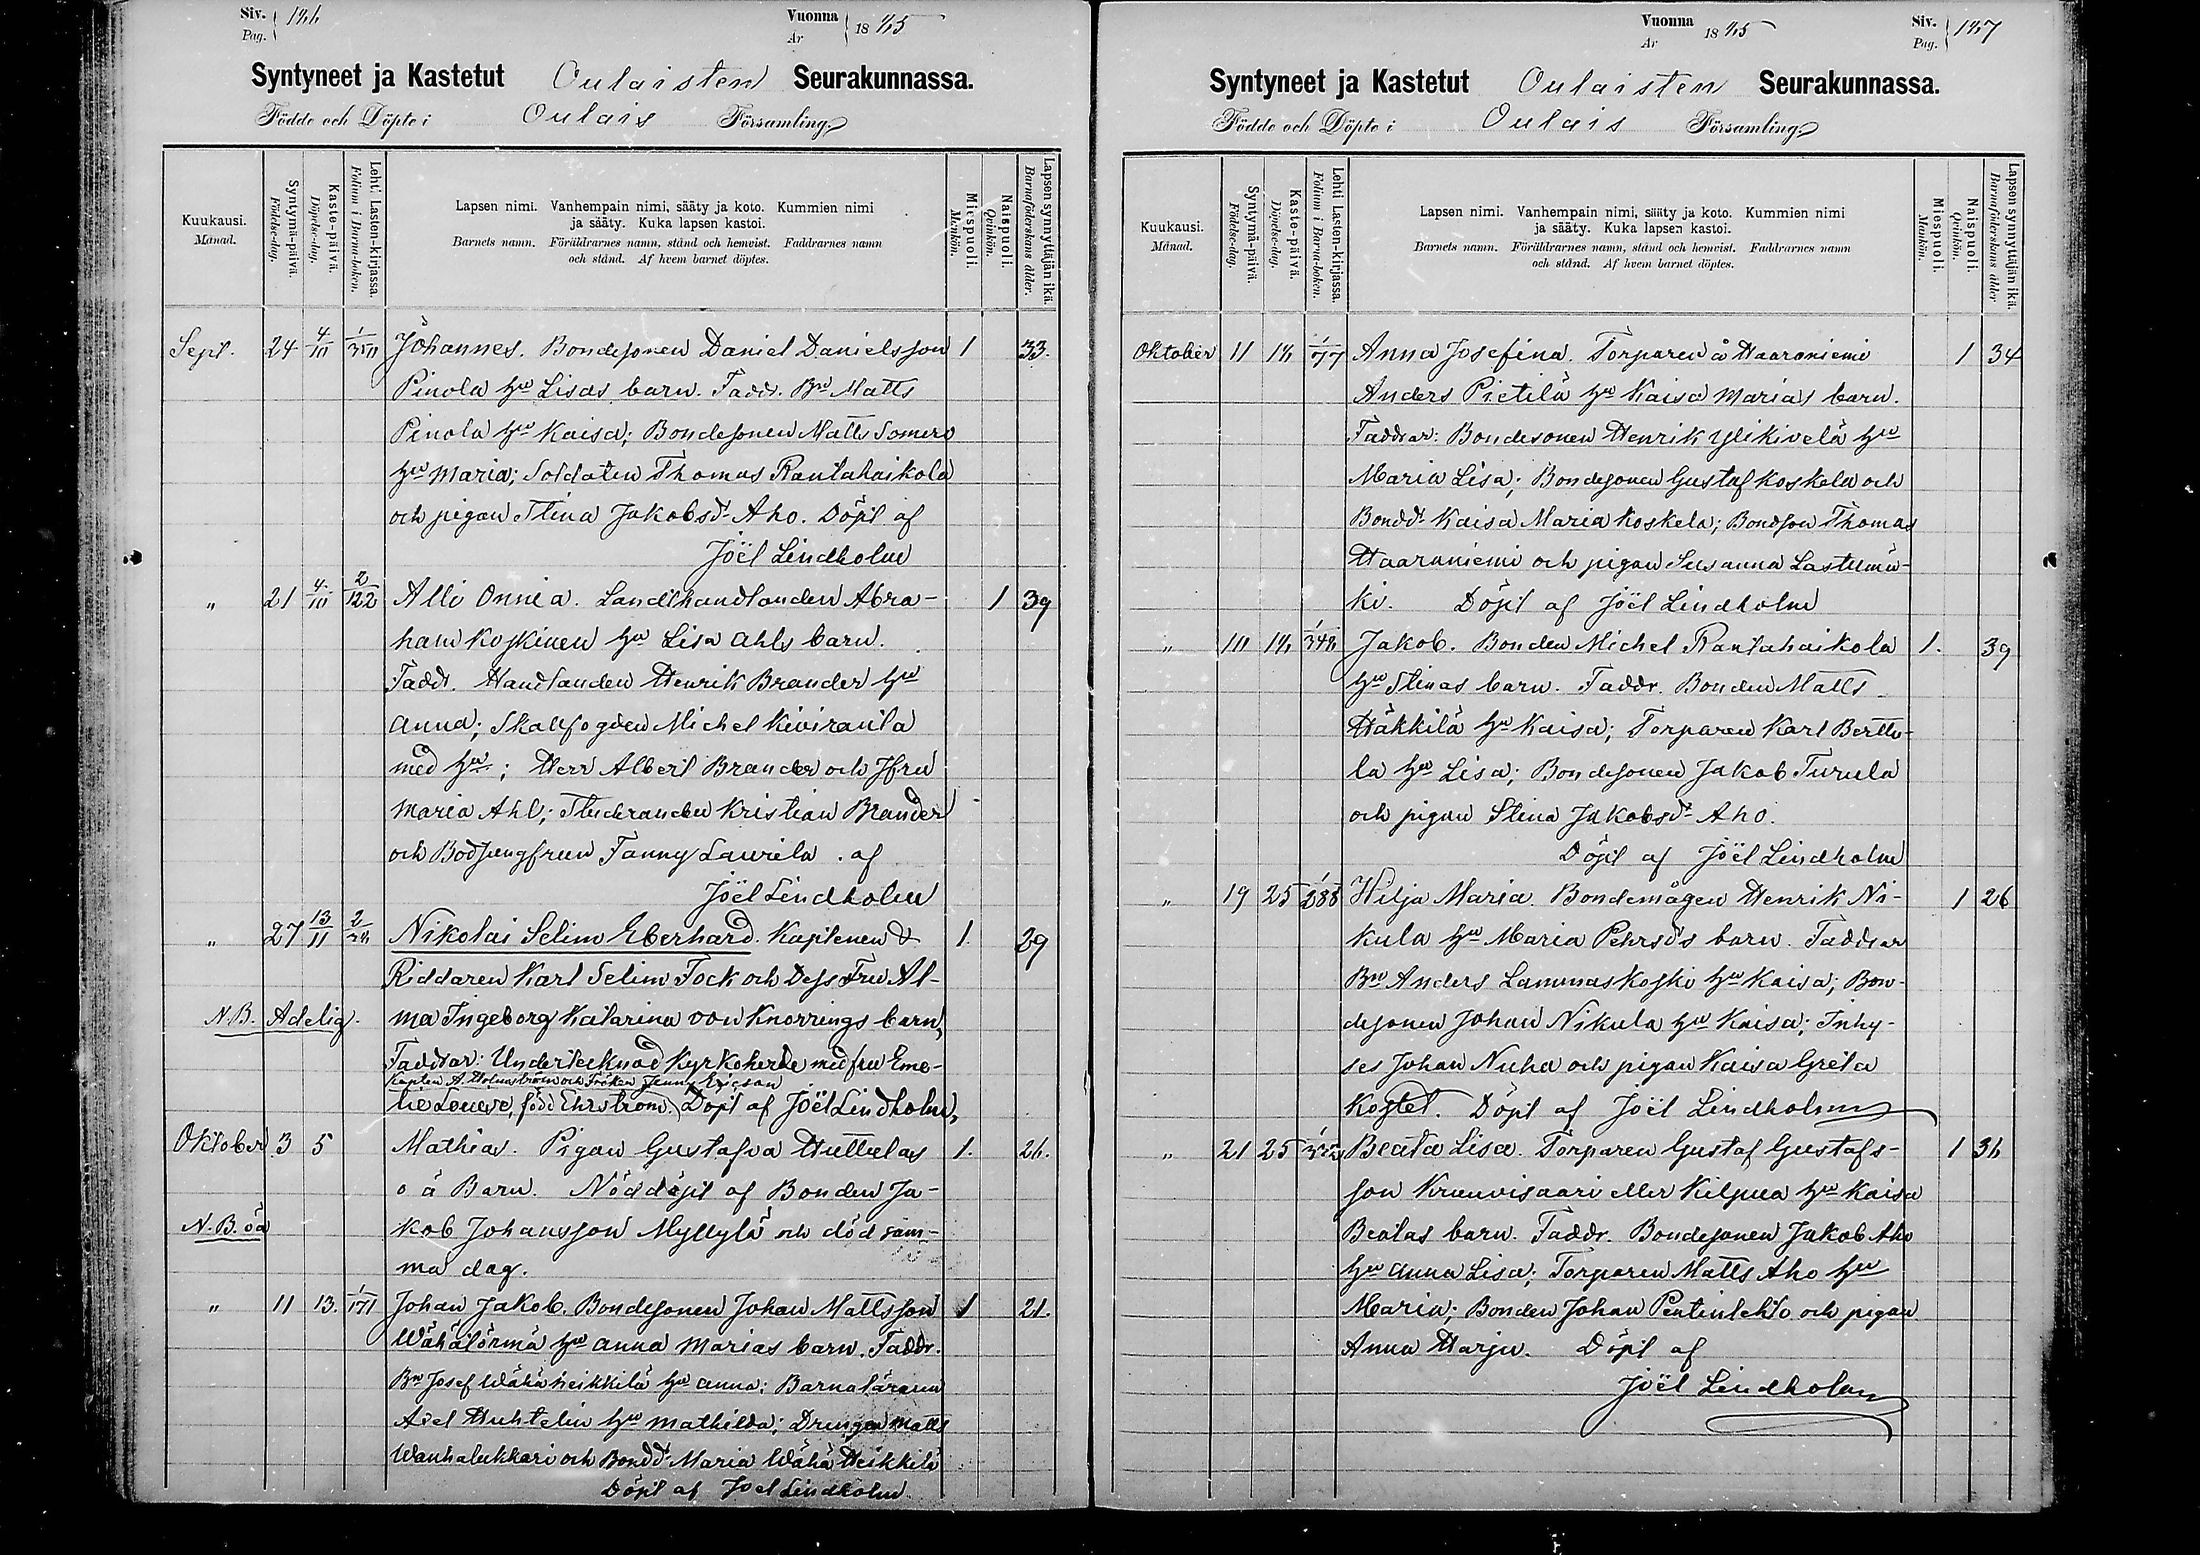 Siv. Pag. 146
Vuonna År 1845
Syntyneet ja Kastetut Oulaisten Seurakunnassa.
Födde och Döpte i Oulais Församling.
Kuukausi. Månad.
Syntymä-päivä. Födelse-dag.
Kaste-päivä. Döpelse-dag.
Lehti Lasten-kirjassa. Folium i Barna-boken.
Lapsen nimi. Vanhempain nimi, sääty ja koto. Kummien nimi
ja sääty. Kuka lapsen kastoi.
Barnets namn. Föräldrarnes namn, stånd och hemvist. Faddrarnes namn
och stånd. Af hvem barnet döptes.
Miespuoli. Mankön.
Naispuoli. Qvinkön.
Lapsen synnyttäjän ikä. Barnaföderskans ålder.
Sept. 24 4/10 1/350 Johannes. Bondesonen Daniel Danielsson 1 33.
Pinola hu Lisas barn. Faddr. Bn Matts
Pinola hu Kaisa; Bondesonen Matts Somero
hu Maria; Soldaten Thomas Rantahaikola
och pigan Stina Jakobsdr Aho. Döpt af
Joël Lindholm
" 21 4/10 2/122 Alli Onnia. Landthandlanden Abra- 1 39
ham Koskinen hu Lisa Ahls barn.
Faddr. Handlanden Henrik Brander hu
Anna; Skallfogden Michel Kiviranta
med hu; Herr Albert Brander och Jfru
Maria Ahl; Studeranden Kristian Brander
och Bodjungfrun Fanny Laurila. af
Joël Lindholm
" 27 13/11 2/ Nikolai Selim Eberhard. Kaptenen & 1. 29
Riddaren Karl Selim Tock och Dess Fru Al-
N.B. Adelig. ma Ingeborg Katarina von Knorrings barn,
Faddrar: Undertecknad Kyrkoherde med fru Eme-
Kapten A. Holmström och Fröken Jenny Ericson
lie Lovise, född Ehrström. Döpt af Joël Lindholm,
Oktober 3 5 Mathias. Pigan Gustafva Huttulas 1. 26.
o ä Barn. Nöddöpt af Bonden Ja-
N.B. oä kob Johansson Myllylä och död sam-
ma dag.
" 11 13. 1/171 Johan Jakob. Bondesonen Johan Mattsson 1 21.
Wähätörmä hu Anna Marias barn. Faddr.
Bn Josef Wähäheikkilä hu Anna; Barnaläraren
Axel Huhtelin hu Mathilda; Drengen Matts
Wanhalukkari och Bondd. Maria Wähä Heikkilä
Döpt af Joel Lindholm.
Vuonna År 1845
Siv. Pag. 147
Syntyneet ja Kastetut Oulaisten Seurakunnassa.
Födde och Döpte i Oulais Församling.
Kuukausi. Månad.
Syntymä-päivä. Födelse-dag.
Kaste-päivä. Döpelse-dag.
Lehti Lasten-kirjassa. Folium i Barna-boken.
Lapsen nimi. Vanhempain nimi, sääty ja koto. Kummien nimi
ja sääty. Kuka lapsen kastoi.
Barnets namn. Föräldrarnes namn, stånd och hemvist. Faddrarnes namn
och stånd. Af hvem barnet döptes.
Miespuoli. Mankön.
Naispuoli. Qvinkön.
Lapsen synnyttäjän ikä. Barnaföderskans ålder
Oktober 11 14 1/77 Anna Josefina. Torparen å Haaraniemi 1 34
Anders Pietilä hu Kaisa Marias barn.
Faddrar: Bondesonen Henrik Ylikivelä hu
Maria Lisa; Bondesonen Gustaf Koskela och
Bondd. Kaisa Maria Koskela; Bondson Thomas
Haaraniemi och pigan Susanna Lastumä-
ki. Döpt af Joël Lindholm
" 10 14 1/344 Jakob. Bonden Michel Rantahaikola 1. 39
hu Stinas barn. Faddr. Bonden Matts
Häkkilä hu Kaisa; Torparen Karl Berttu-
la hu Lisa; Bondesonen Jakob Turula
och pigan Stina Jakobsdr Aho.
Döpt af Joël Lindholm
" 19 25 1/288 Hilja Maria. Bondemågen Henrik Ni- 1 26
kula hu Maria Pehrsd:s barn. Faddrar
Bn Anders Lammaskoski hu Kaisa; Bon-
desonen Johan Nikula hu Kaisa; Inhy-
ses Johan Nuha och pigan Kaisa Greta
Kostet. Döpt af Joël Lindholm
" 21 25 Beata Lisa. Torparen Gustaf Gustafs- 1 36
son Kruuvisaari eller Kilpua hu Kaisa
Beatas barn. Faddr. Bondesonen Jakob Aho
hu Anna Lisa; Torparen Matts Aho hu
Maria; Bonden Johan Pentinlehto och pigan
Anna Harju. Döpt af
Joël Lindholm